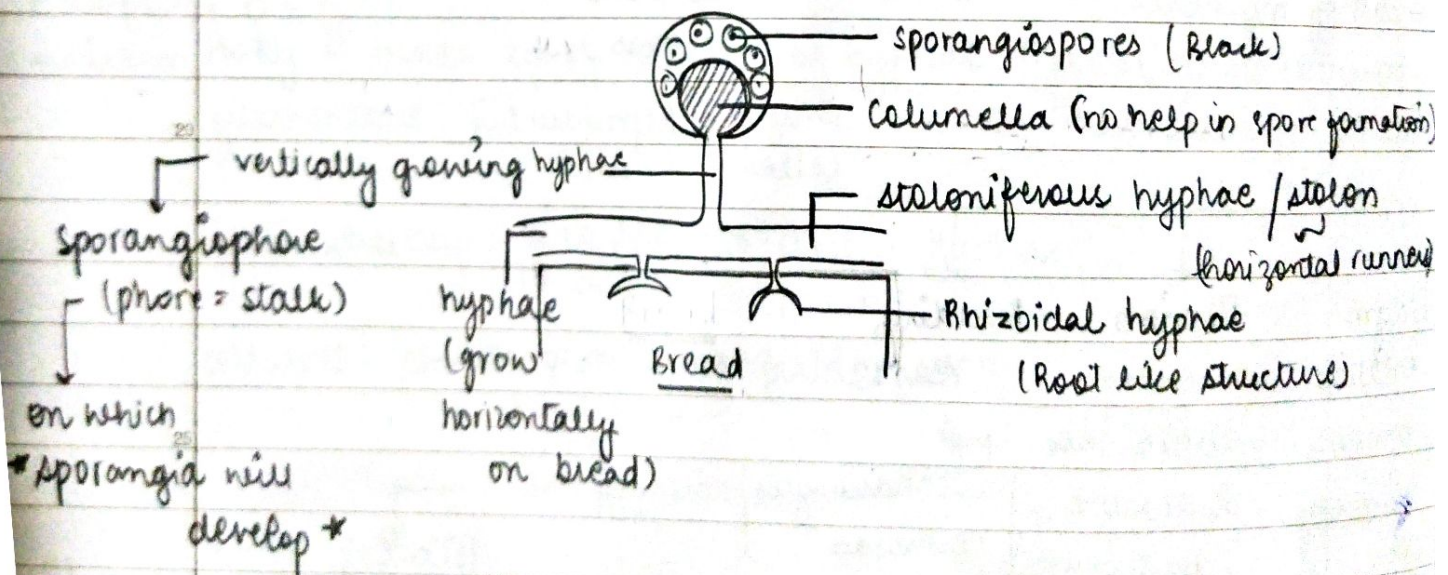 sporangiospores (Black)
Columella (no help in spore formation)
20
vertically growing hyphae
stoloniferous hyphae / stolon
(horizontal runner)
Sporangiophore
(phore = stalk)
hyphae
(grow
horizontally
on bread)
Bread
Rhizoidal hyphae
(Root like structure)
on which
25
*sporangia will
develop *